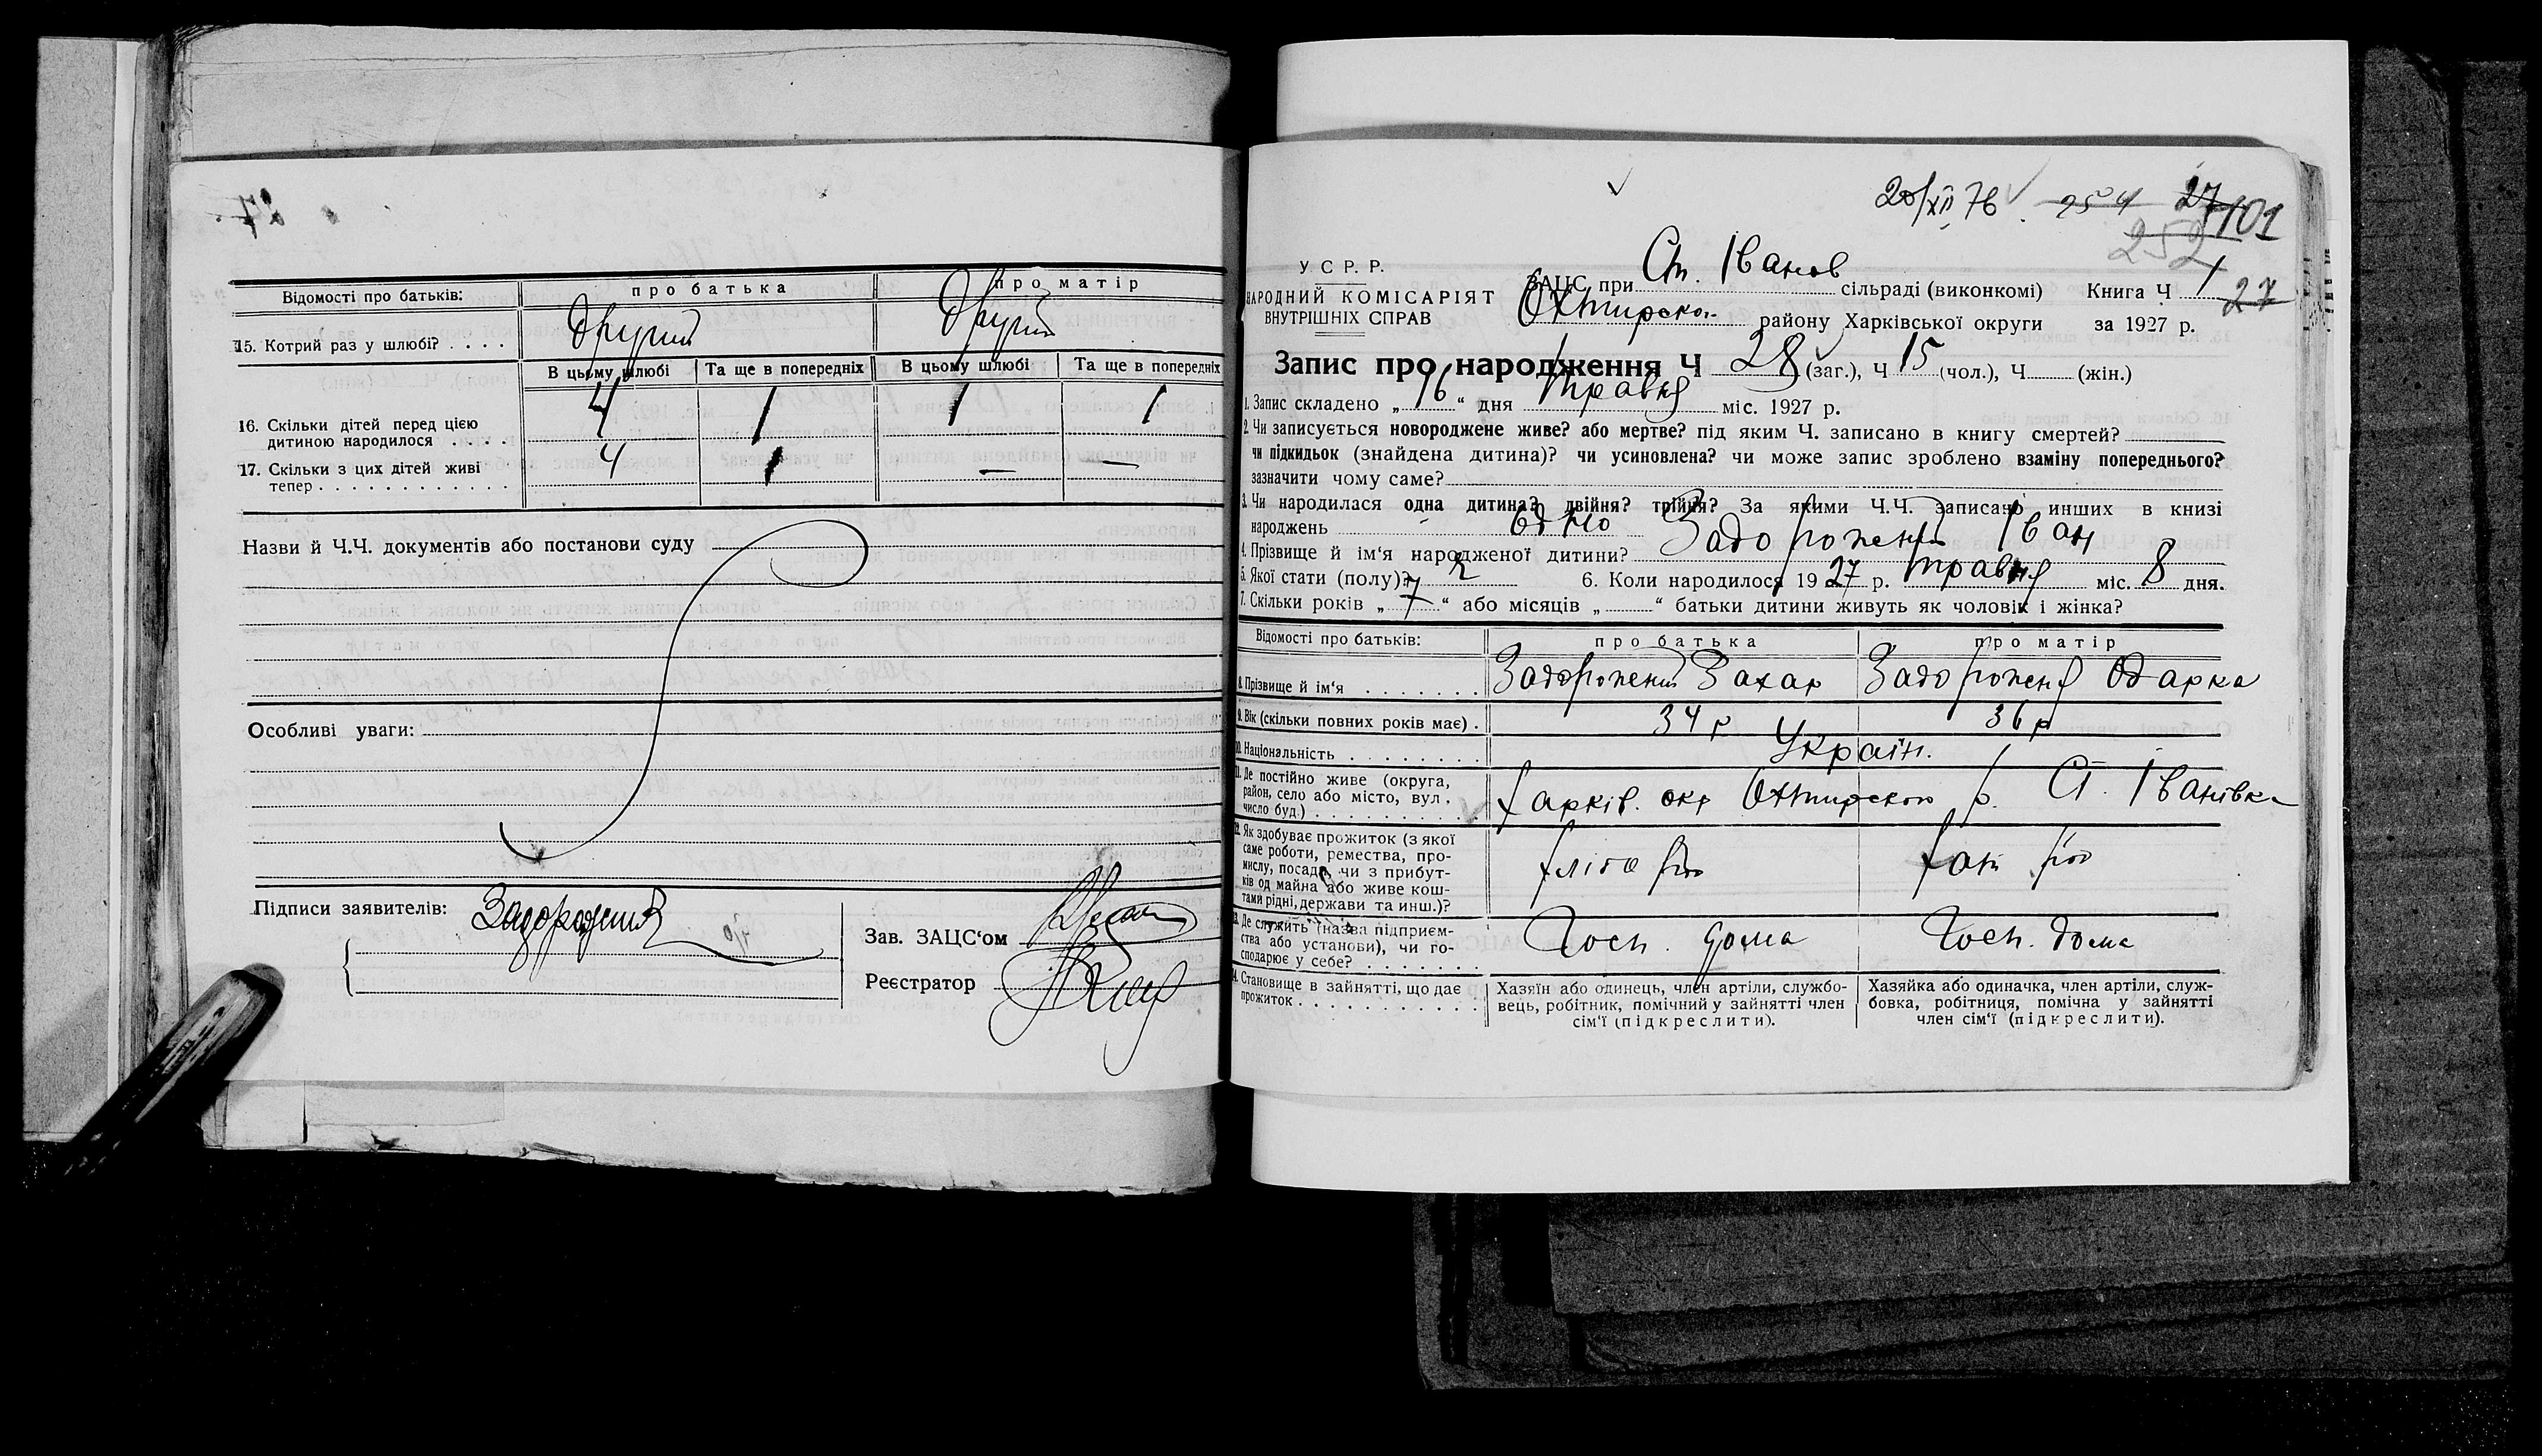 27
Відомості про батьків: про батька про матір
15. Котрий раз у шлюбі? . . . . другий другий
В цьому шлюбі Та ще в попередніх В цьому шлюбі Та ще в попередніх
16. Скільки дітей перед цією
дитиною народилося . . . . 4 1 1 1
17. Скільки з цих дітей живі
тепер . . . . . . . . . . . . 4 1 — —
Назви й Ч.Ч. документів або постанови суду
Особливі уваги:
Підписи заявителів:
Зав. ЗАЦС‘ом
Реєстратор
20/XII 76 254 27 101
252
У С Р. Р.
НАРОДНИЙ КОМІСАРІЯТ
ВНУТРІШНІХ СПРАВ
ЗАЦС при Ст. Іванов сільраді (виконкомі) Книга Ч 1
27
Охтирскої району Харківської округи за 1927 р.
Запис про народження Ч 28 (заг.), Ч 15 (чол.), Ч (жін.)
1. Запис складено „ 16 “ дня травня міс. 1927 р.
2. Чи записується новороджене живе? або мертве? під яким Ч. записано в книгу смертей?
чи підкидьок (знайдена дитина)? чи усиновлена? чи може запис зроблено взаміну попереднього?
зазначити чому саме?
3. Чи народилася одна дитина? двійня? трійня? За якими Ч.Ч. записано инших в книзі
народжень одно
4. Прізвище й ім‘я народженої дитини? Задорожений Іван
5. Якої стати (полу)? ч 6. Коли народилося 1927 р. травня міс. 8 дня.
7. Скільки років „ 7 “ або місяців „ “ батьки дитини живуть як чоловік і жінка?
Відомості про батьків: про батька про матір
8. Прізвище й ім‘я . . . . . . . Задорожений Захар Задорожена Одарка
9. Вік (скільки повних років має) . 34 р 36 р
10. Національність . . . . . . . . Україн.
11. Де постійно живе (округа,
район, село або місто, вул.,
число буд.) . . . . . . . . . . Харків. окр Охтирской р. Ст. Іванівка
12. Як здобуває прожиток (з якої
саме роботи, ремества, про-
мислу, посади, чи з прибут-
ків од майна або живе кош-
тами рідні, держави та инш.)? хліб роб хат роб
13. Де служить (назва підприєм-
ства або установи), чи го-
сподарює у себе? . . . . . . . Госп. дома Госп. дома
14. Становище в зайнятті, що дає
прожиток . . . . . . . . . .
Хазяїн або одинець, член артіли, службо-
вець, робітник, помічний у зайнятті член
сім‘ї (підкреслити).
Хазяйка або одиначка, член артіли, служ-
бовка, робітниця, помічна у зайнятті
член сім‘ї (підкреслити).